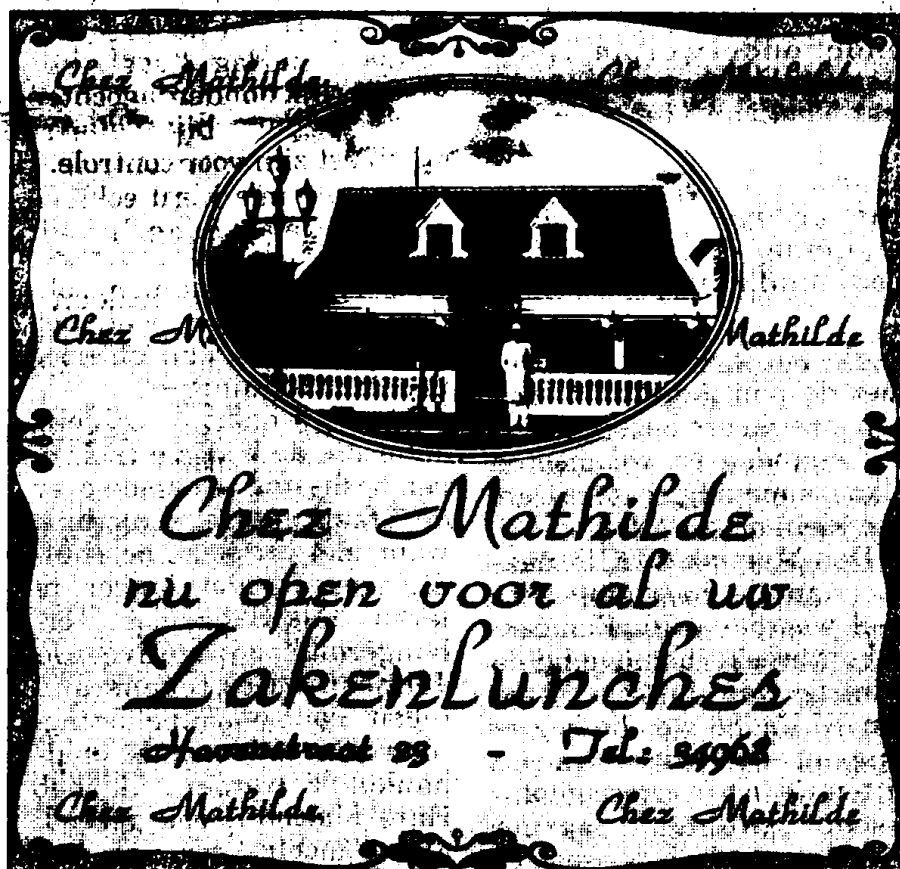 Chez Mathilde Chez Mathilde
Chez Mathilde
Chez Mathilde
nu open voor al uw
Zakenlunches
Havenstraat 23 - Tel.: 34968
Chez Mathilde Chez Mathilde